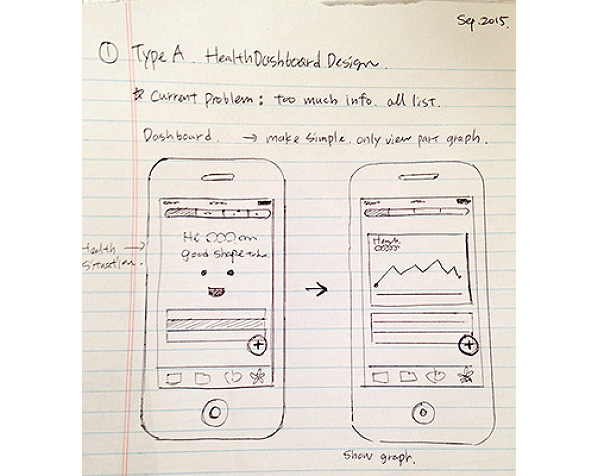 Sep. 2015.
① Type A. Health Dashboard Design.
☆ Current problem : too much info. all list.
Dashboard. → make simple. only view part graph.
Health →
Situation.
Hi
good shape
Health
Show graph.